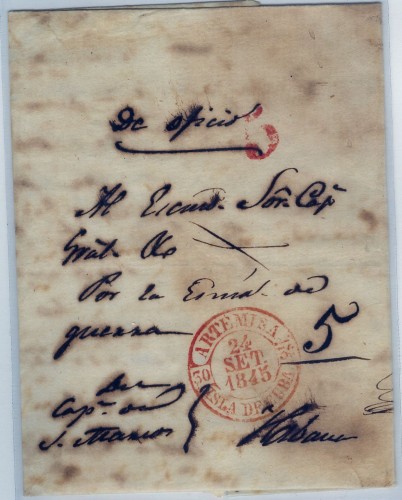 De oficio
5
Al Escmo. Sor. Capn.
Gral. &a
Por la Comis. de
guerra
5
ARTEMISA
24
SET.
1845
ISLA DE CUBA
Del
Capn. de
S. Marcos
Habana